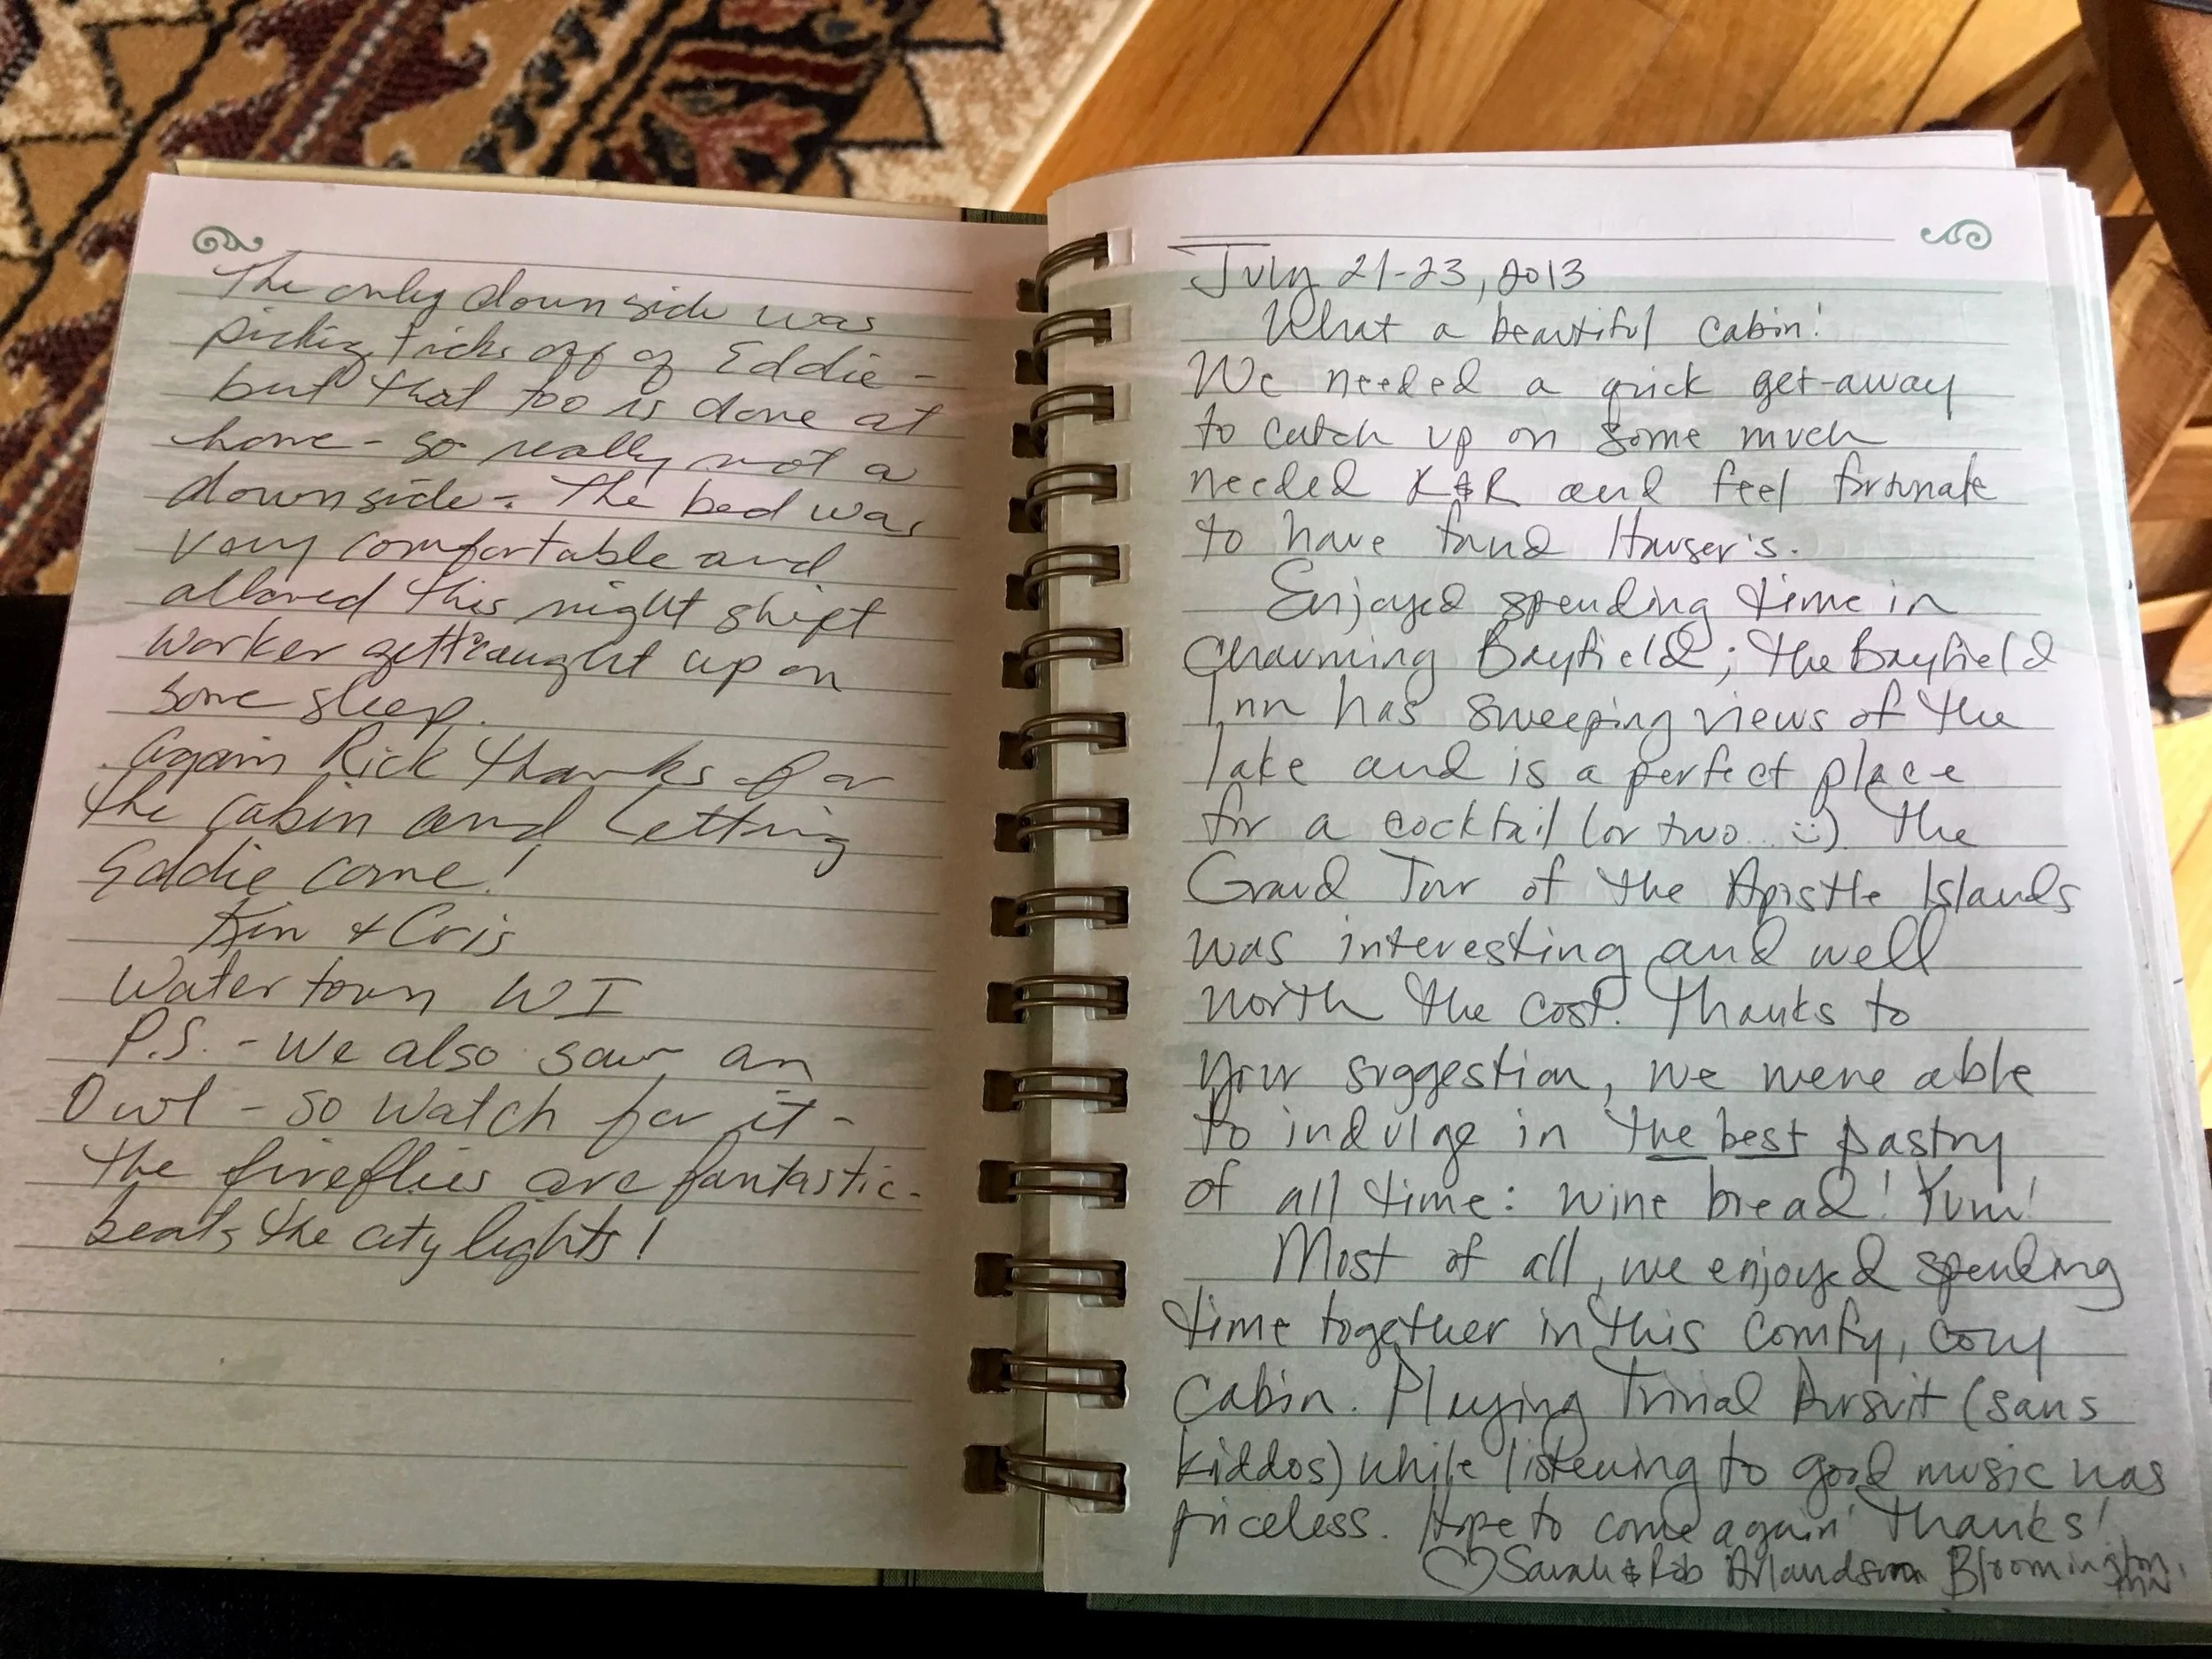 The only down side was
picking ticks off of Eddie -
but that too is done at
home - so really not a
down side - The bed was
very comfortable and
allowed this night shift
worker gett caught up on
some sleep.
Again Rick thanks for
the cabin and Letting
Eddie come!
Kin & Cris
Watertown WI
P.S. - We also saw an
Owl - so watch for it -
the fireflies are fantastic -
beats the city lights!
July 21-23, 2013
What a beautiful cabin!
We needed a quick get-away
to catch up on some much
needed R&R and feel fortunate
to have found Hauser's.
Enjoyed spending time in
charming Bayfield; the Bayfield
Inn has sweeping views of the
lake and is a perfect place
for a cocktail (or two... :) The
Grand Tour of the Apostle Islands
was interesting and well
worth the cost. Thanks to
your suggestion, we were able
to indulge in the best pastry
of all time: wine bread! Yum!
Most of all, we enjoyed spending
time together in this comfy, cozy
cabin. Playing Trivial Pursuit (sans
kiddos) while listening to good music was
priceless. Hope to come again! Thanks!
♡ Sarah & Rob Arlandson Bloomington, MN